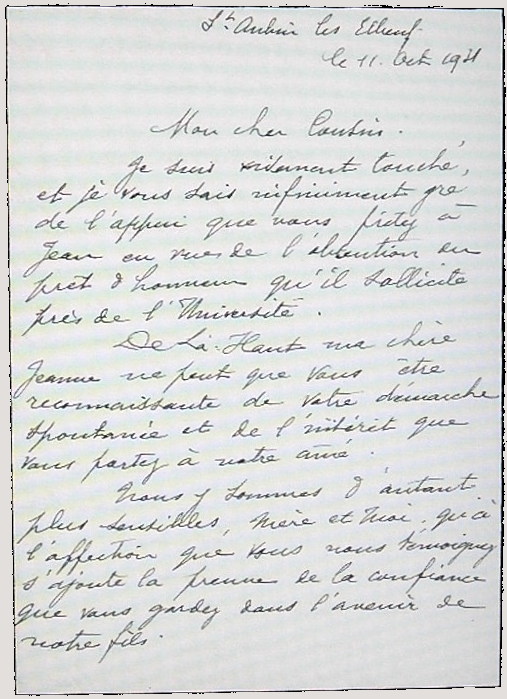 St Aubin les Elbeuf
le 11. Oct. 1931
Mon cher Cousin.
Je suis vraiment touché,
et je vous sais infiniment gré
de l'appui que vous prêtez à
Jean en vue de l'obtention du
prêt d'honneur qu'il sollicite
près de l'Université.
De Là-Haut ma chère
Jeanne ne peut que vous être
reconnaissante de votre démarche
spontanée et de l'intérêt que
vous portez à notre aîné.
Nous y sommes d'autant
plus sensibles, Mère et Moi, qu'à
l'affection que vous nous témoignez
s'ajoute la preuve de la confiance
que vous gardez dans l'avenir de
notre fils.